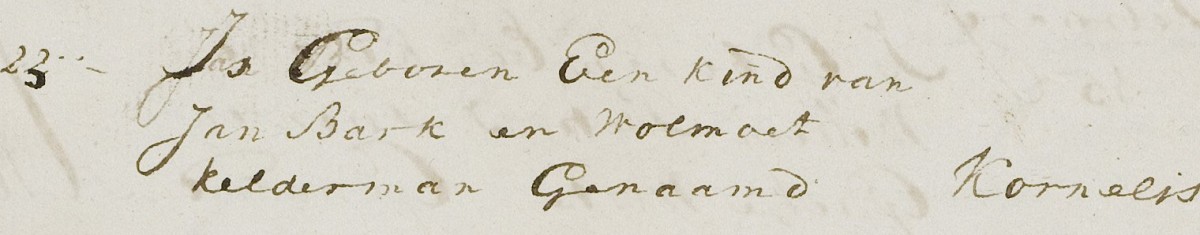 23 - Js Geboren Een kind van
Jan Bark en Wolmoet
kelderman Genaamd Kornelis